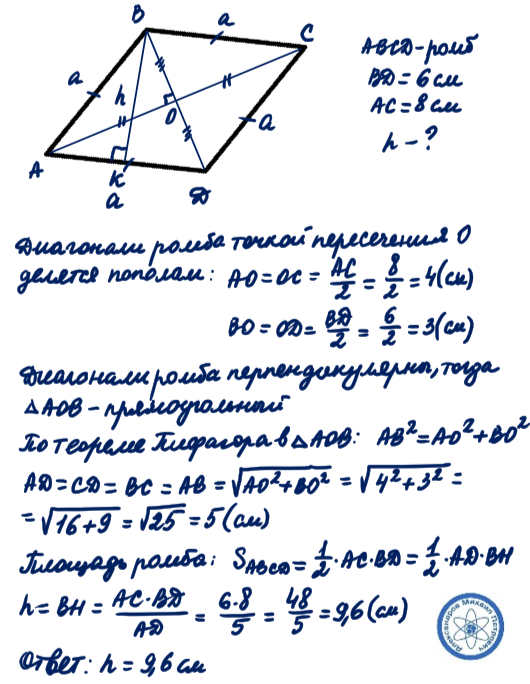 B a C
ABCD - ромб
a h BD = 6 см
AC = 8 см
O a
h - ?
A K D
a
Диагонали ромба точкой пересечения O
делятся пополам: AO = OC = AC/2 = 8/2 = 4 (см)
BO = OD = BD/2 = 6/2 = 3 (см)
Диагонали ромба перпендикулярны, тогда
△AOB - прямоугольный
По теореме Пифагора в △AOB: AB² = AO² + BO²
AD = CD = BC = AB = √(AO² + BO²) = √(4² + 3²) =
= √(16 + 9) = √25 = 5 (см)
Площадь ромба: S_ABCD = 1/2 · AC · BD = 1/2 · AD · BH
h = BH = AC · BD / AD = 6 · 8 / 5 = 48/5 = 9,6 (см)
Ответ: h = 9,6 см
Александров Михаил Петрович